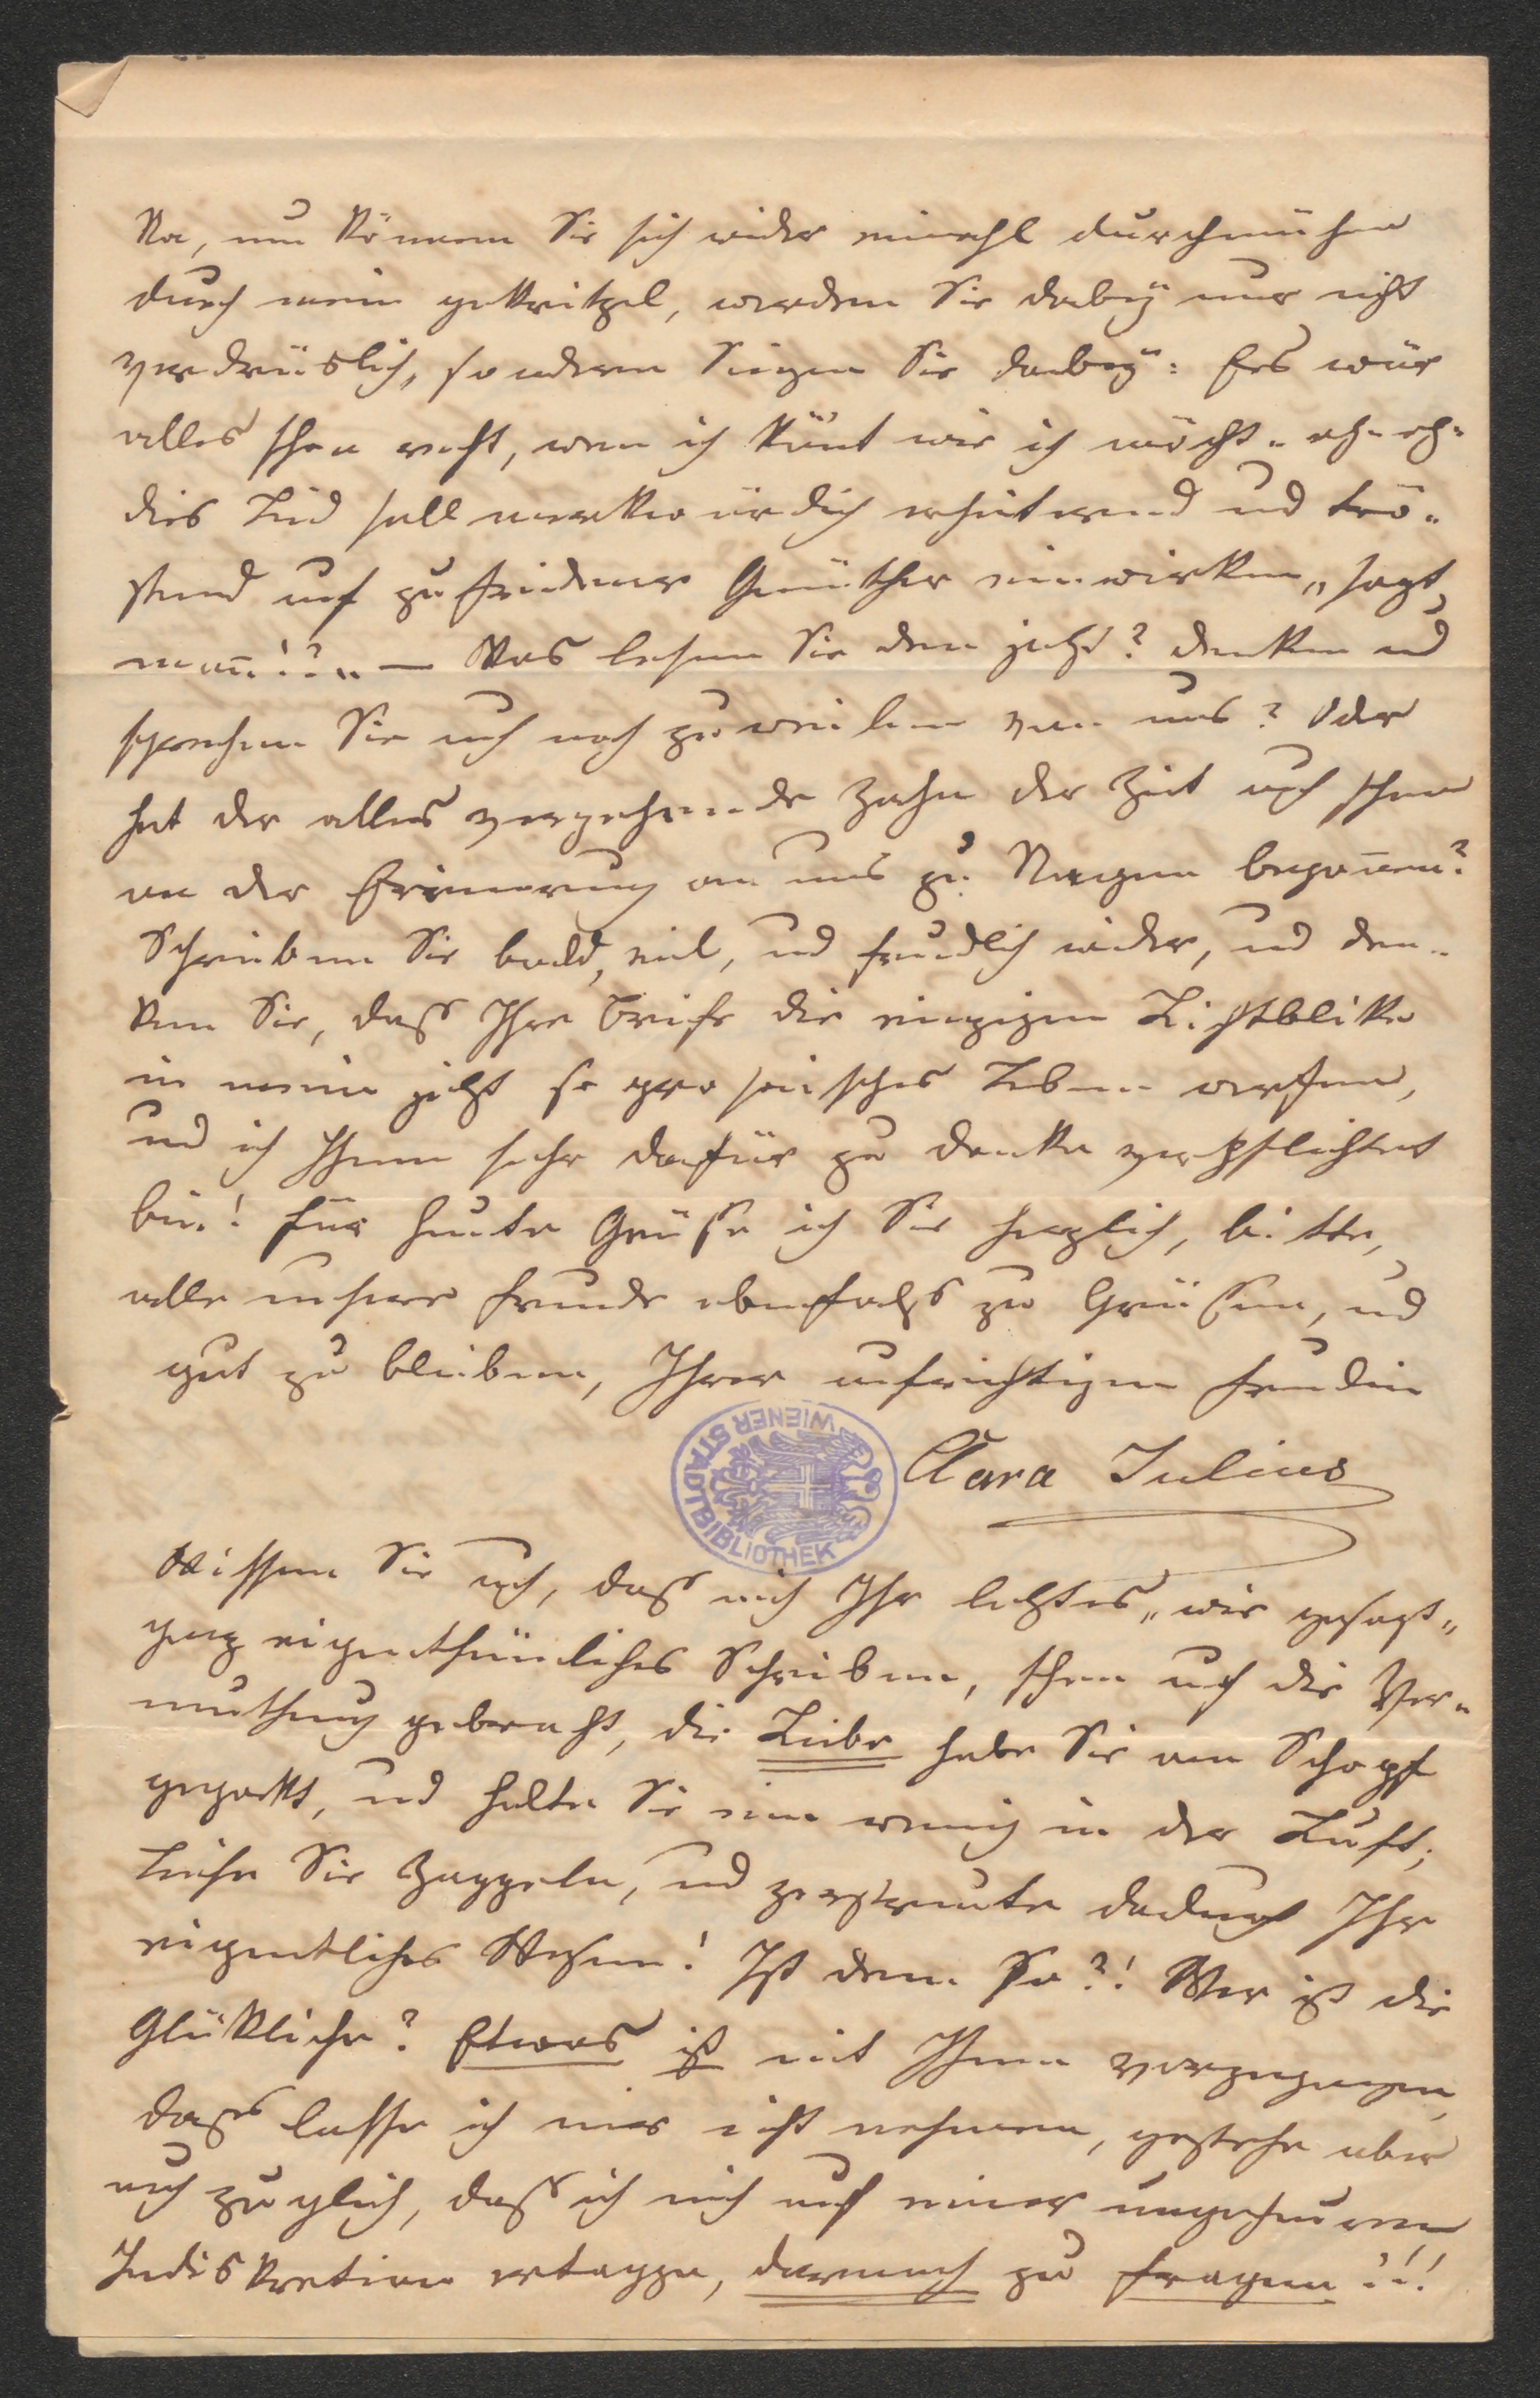 Na, nun können Sie sich wider einmahl durchmühen
durch mein gekritzel, werden Sie dabey nur nicht
verdrüslich, sondern Singen Sie dabey: Es wär
alles schon recht, wen ich könt wie ich möcht
dies Lied soll merkwürdich erheiternd und trö-
stend auf zufridener Gemüther einwirken „sagt
man!?" — Was lesen Sie den jetzt? denken und
sprechen Sie auch noch zuweilen von uns? Oder
hat der alles vergehende Zahn der Zeit auch schon
an der Erinnerung an uns zu Nagen begonnen?
Schreiben Sie bald, viel, und freundlich wider, und den-
ken Sie, daß Ihre Briefe die einzigen Lichtblike
in mein jetzt so prosaisches Leben werfen,
und ich Ihnen sehr dafür zu danke verpflichtet
bin! für heute Grüße ich Sie herzlich, bitte,
alle unsere freunde ebenfals zu Grüßen, und
gut zu bleiben, Ihrer aufrichtigen freundin
Clara Julius
WIENER STADTBIBLIOTHEK
Wissen Sie auch, daß mich Ihr letztes, „wie gesagt"
ganz eigenthümliches Schreiben, schon auf die Ver-
muthung gebracht, die Liebe habe Sie am Schopf
gepakt, und halte Sie ein wenig in der Luft;
Ließe Sie Zappeln, und zerstreute dadurch Ihr
eigentliches Wesen! Ist dem So?! Wer ist die
Glükliche? Etwas ist mit Ihnen vorgegangen,
daß lasse ich mir nicht nehmen, gestehe aber
auch zugleich, daß ich mich auf einer ungeheuren
Indiskretion ertappe, darnach zu fragen?!!